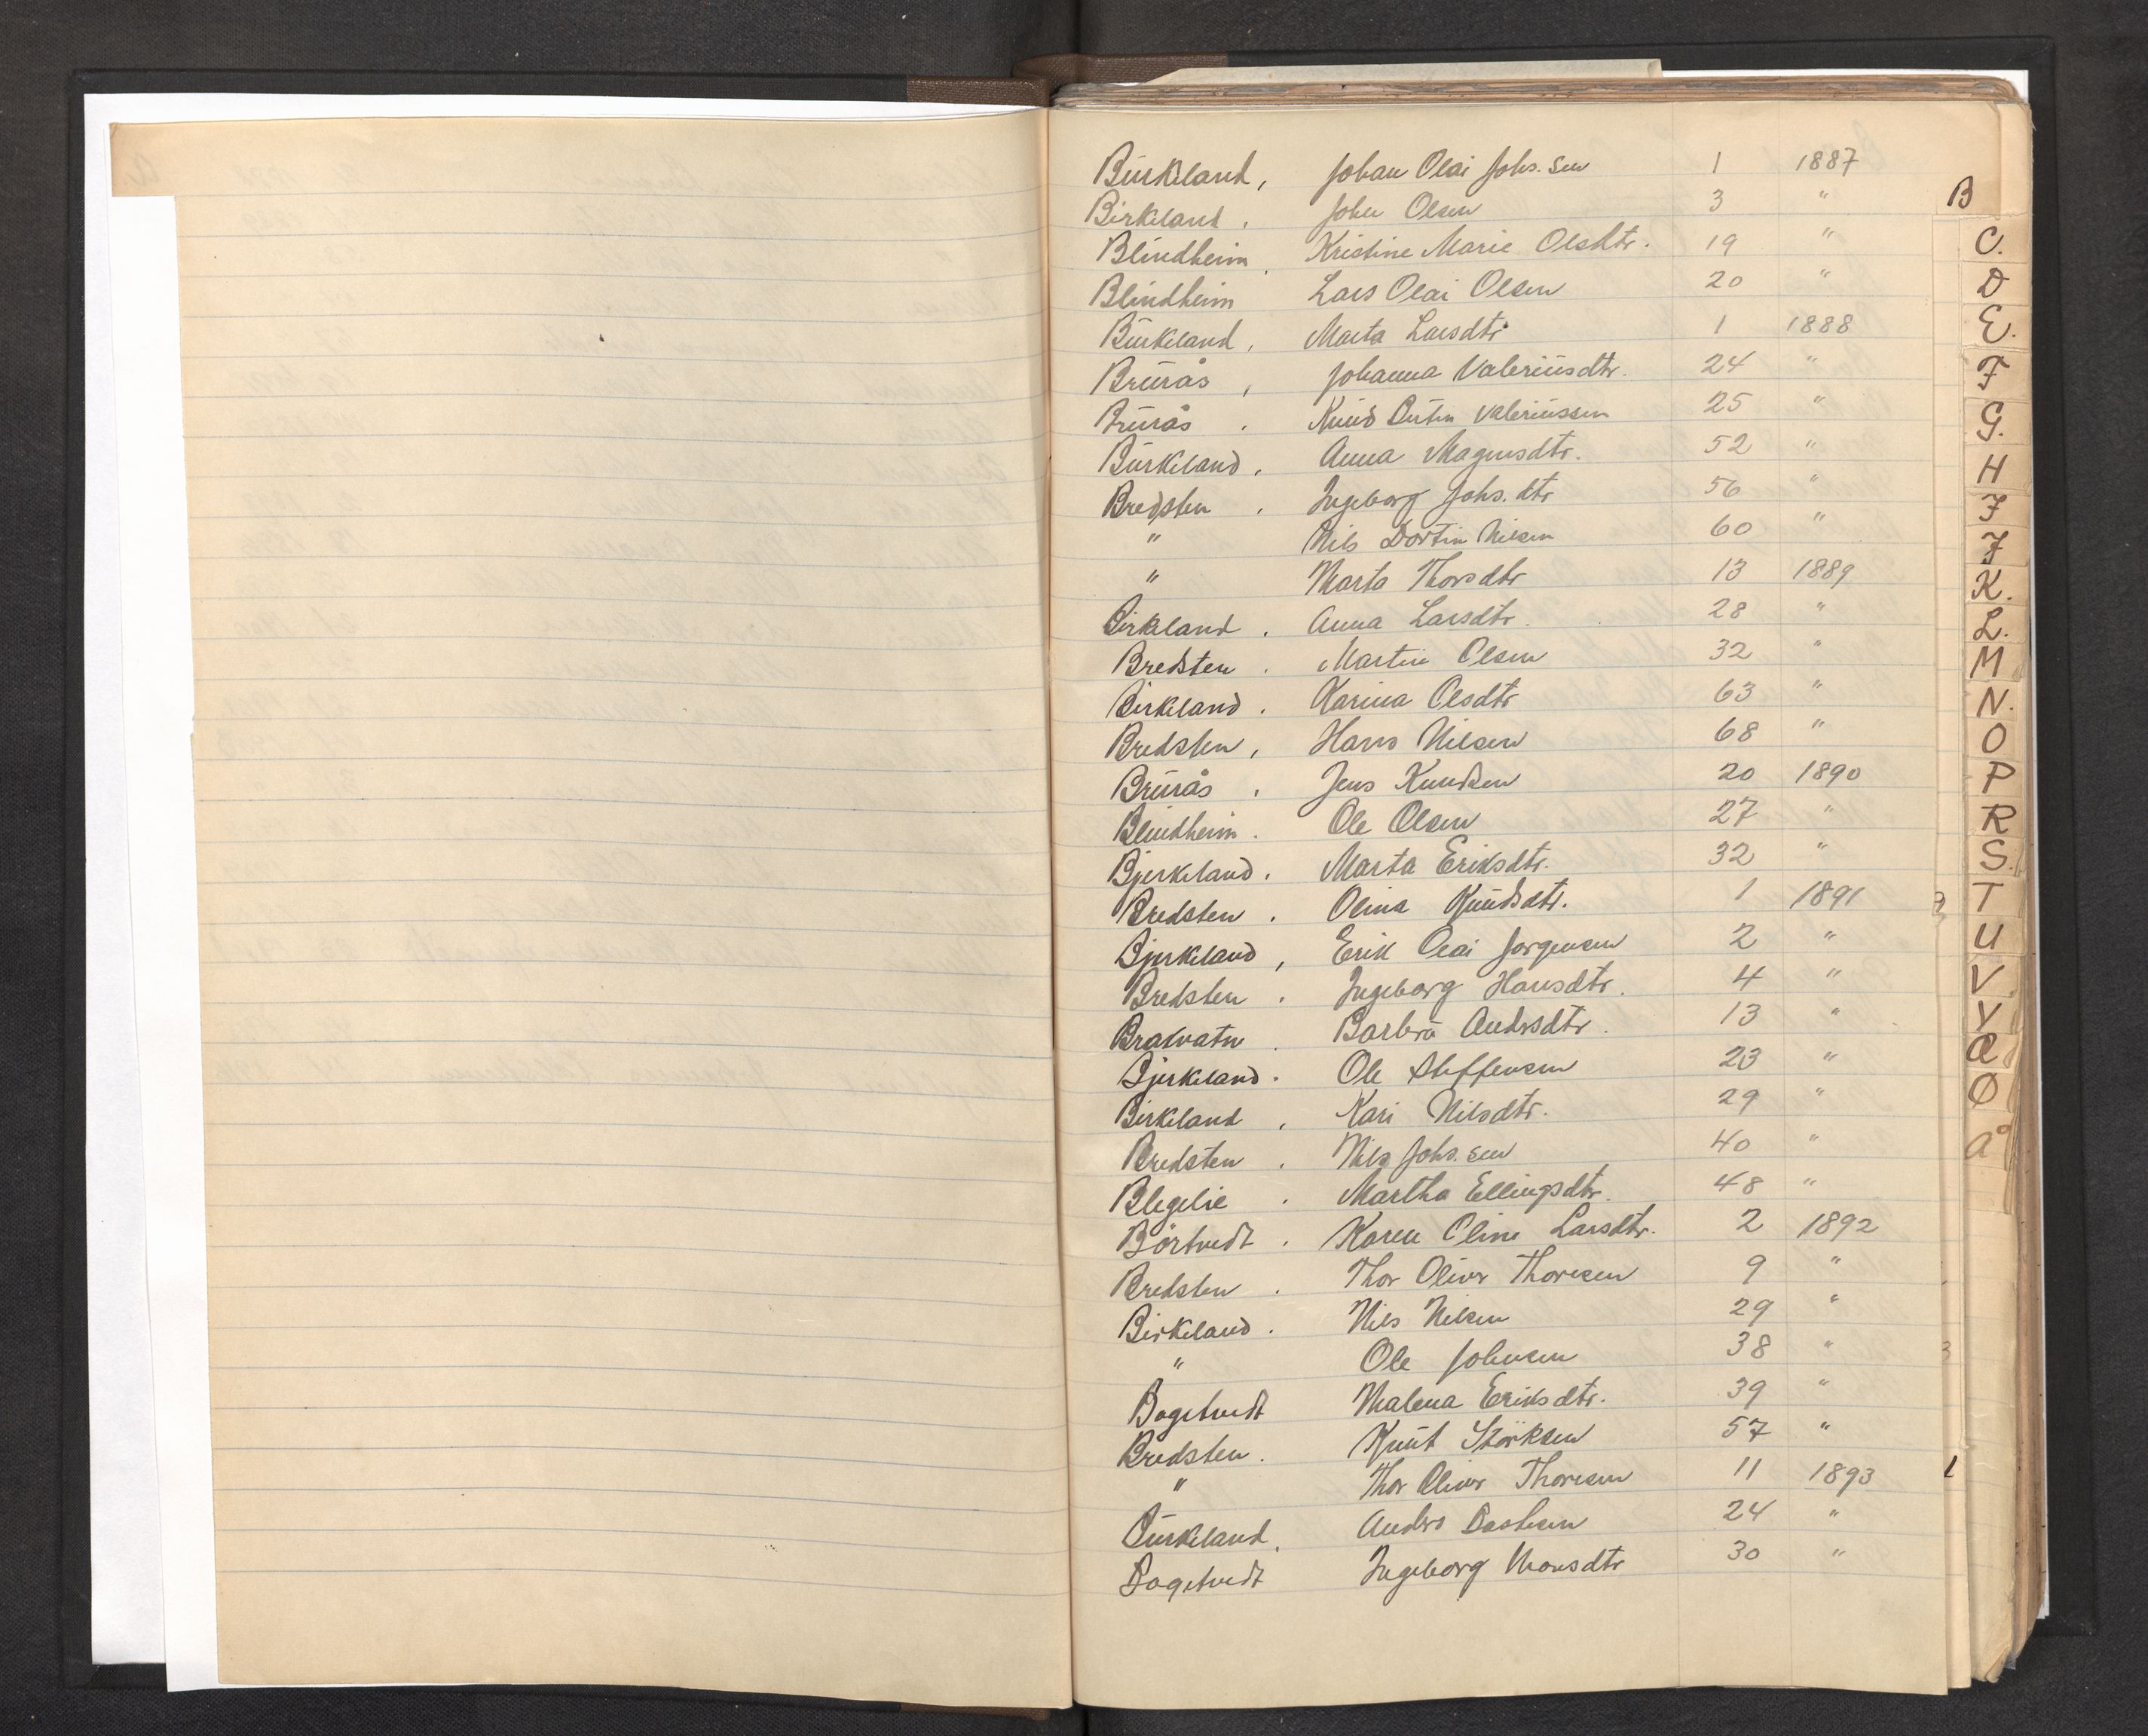 Burkeland, Johan Olai Johs. sen 1 1887
Birkeland. John Olsen 3 "
Blindheim, Kristine Marie Olsdtr. 19 "
Blindheim Lars Olai Olsen 20 "
Burkeland, Marta Larsdtr 1 1888
Brurås, Johanna Valeriusdtr. 24 "
Brurås. Knud Valeriussen 25 "
Burkeland. Anna Magnusdtr. 52 "
Bredsten. Ingeborg Johs. dtr 56 "
" Nils Dortin Nilsen 60 "
" Marta Thorsdtr 13 1889
Birkeland. Anna Larsdtr. 28 "
Bredsten. Martin Olsen 32 "
Birkeland. Karina Olsdtr 63 "
Bredsten, Hans Nilsen 68 "
Brurås. Jens Knudsen 20 1890
Blindheim. Ole Olsen 27 "
Bjerkeland. Marta Eriksdtr. 32 "
Bredsten. Olina Knudsdtr. 1 1891
Bjerkeland, Erik Olai Jørgensen 2 "
Bredsten. Ingeborg Hansdtr. 4 "
Brakvatn. Barbra Andrsdtr. 13 "
Bjerkeland. Ole Steffensen 23 "
Birkeland, Kari Nilsdtr. 29 "
Bredsten. Nils Johs. sen 40 "
Blegelie. Martha Ellingsdtr. 48 "
Börtvedt. Karen Oline Larsdtr. 2 1892
Bredsten. Thor Oliver Thoresen 9 "
Birkeland. Nils Nilsen 29 "
" Ole Johnsen 38 "
Bogetvedt Malena Eriksdtr. 39 "
Bredsten. Knut Störksen 57 "
" Thor Oliver Thoresen 11 1893
Burkeland. Anders Bastesen 24 "
Bogetvedt Ingeborg Monsdtr 30 "
B
C.
D
E.
F
G.
H
I
J
K.
L.
M
N.
O
P
R
S.
T
U
V
Y
Æ
Ø
Å